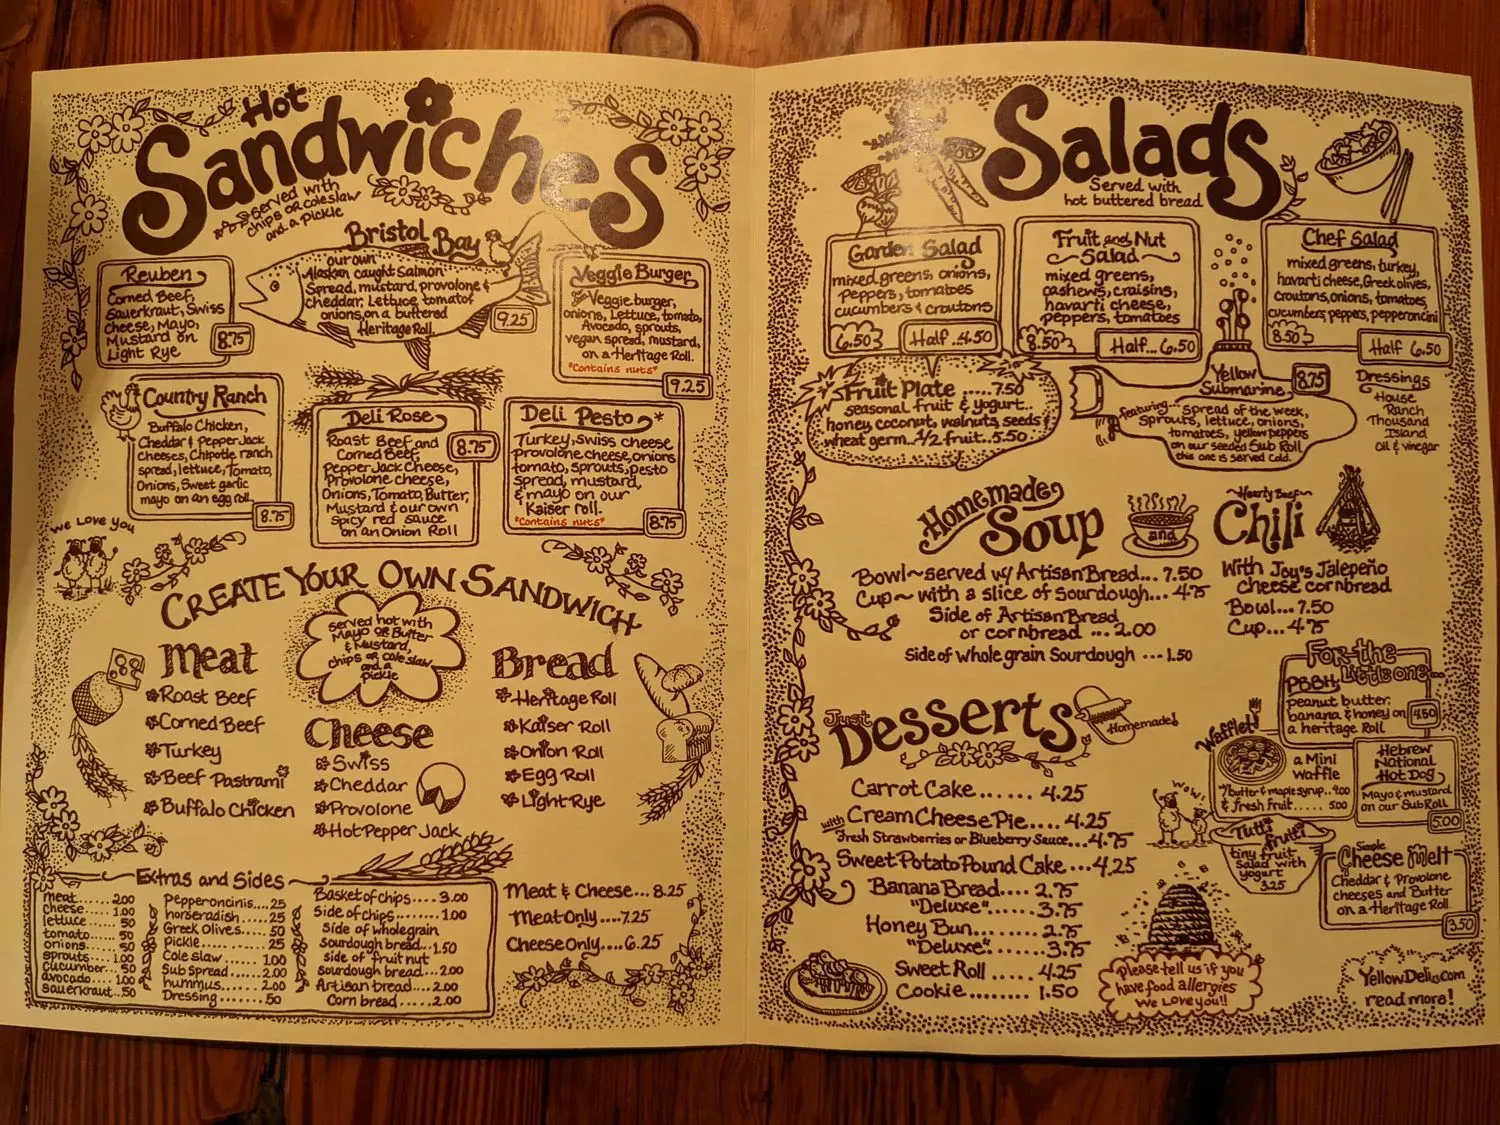 Hot
Sandwiches
served with
chips or coleslaw
and a pickle
Bristol Bay
our own
Alaskan caught Salmon
Spread, mustard, provolone &
cheddar, Lettuce, tomato &
onions, on a buttered
Heritage Roll.
9.25
Reuben
Corned Beef,
Sauerkraut, Swiss
Cheese, Mayo,
Mustard on
Light Rye
8.75
Veggie Burger
Veggie burger,
onions, Lettuce, tomato,
Avocado, sprouts,
vegan spread, mustard,
on a Heritage Roll.
*Contains nuts*
9.25
Country Ranch
Buffalo Chicken,
Cheddar & Pepper Jack
Cheeses, Chipotle ranch
spread, lettuce, Tomato,
Onions, Sweet garlic
mayo on an egg roll
8.75
Deli Rose
Roast Beef and
Corned Beef,
Pepper Jack Cheese,
Provolone cheese,
Onions, Tomato, Butter,
Mustard & our own
Spicy red sauce
on an Onion Roll
8.75
Deli Pesto*
Turkey, Swiss cheese
provolone cheese, onions
tomato, sprouts, pesto
spread, mustard,
& mayo on our
Kaiser roll.
*Contains nuts*
8.75
we Love you
Create Your Own Sandwich
served hot with
Mayo or Butter
& Mustard,
chips or coleslaw
and a
pickle
Meat
Roast Beef
Corned Beef
Turkey
Beef Pastrami
Buffalo Chicken
Cheese
Swiss
Cheddar
Provolone
Hot Pepper Jack
Bread
Heritage Roll
Kaiser Roll
Onion Roll
Egg Roll
Light Rye
Extras and Sides
meat......2.00
cheese....1.00
lettuce.....50
tomato.....50
onions.....50
sprouts...1.00
cucumber...50
avocado...1.00
sauerkraut..50
Pepperoncinis...25
horseradish.....25
Greek Olives....50
pickle.....25
Coleslaw.....1.00
Sub spread...2.00
hummus......2.00
Dressing.......50
Basket of chips....3.00
Side of chips......1.00
Side of wholegrain
sourdough bread...1.50
side of fruit nut
sourdough bread...2.00
Artisan bread...2.00
Corn bread....2.00
Meat & Cheese...8.25
Meat Only....7.25
Cheese Only....6.25
Salads
Served with
hot buttered bread
Garden Salad
mixed greens, onions,
peppers, tomatoes
cucumbers & croutons
6.50
Half..4.50
Fruit and Nut
Salad
mixed greens,
cashews, craisins,
havarti cheese,
peppers, tomatoes
8.50
Half... 6.50
Chef Salad
mixed greens, turkey,
havarti cheese, Greek olives,
croutons, onions, tomatoes,
cucumbers, peppers, pepperoncini
8.50
Half 6.50
Fruit Plate .....7.50
seasonal fruit & yogurt..
honey, coconut, walnuts, seeds &
wheat germ..1/2 fruit..5.50
Yellow
Submarine
8.75
featuring...
Spread of the week,
sprouts, lettuce, onions,
tomatoes, yellow peppers
on our seeded Sub Roll
this one is served cold.
Dressings
House
Ranch
Thousand
Island
Oil & Vinegar
Homemade
Soup
and
Bowl~served w/ Artisan Bread... 7.50
Cup~ with a slice of Sourdough... 4.75
Side of Artisan Bread
or cornbread ... 2.00
Side of whole grain Sourdough ... 1.50
~Hearty Beef~
Chili
With Joy's Jalepeño
Cheese cornbread
Bowl...7.50
Cup... 4.75
Just
Desserts
Homemade!
Carrot Cake...... 4.25
with Cream Cheese Pie.... 4.25
Fresh Strawberries or Blueberry Sauce...4.75
Sweet Potato Pound Cake...4.25
Banana Bread.... 2.75
"Deluxe"...... 3.75
Honey Bun...... 2.75
"Deluxe"...... 3.75
Sweet Roll ..... 4.25
Cookie........ 1.50
For the
Little one...
PBBH
peanut butter,
banana & honey on
a heritage Roll
4.50
Wafflet!
a Mini
Waffle
w/butter & maple syrup..4.00
& fresh fruit..... 5.00
Hebrew
National
Hot Dog
Mayo & mustard
on our Sub Roll
5.00
WOW!
Tutti
frutti
tiny fruit
Salad with
yogurt
3.25
Simple
Cheese Melt
Cheddar & Provolone
cheeses and Butter
on a Heritage Roll.
3.50
Please tell us if you
have food allergies
We Love you!!
YellowDeli.com
read more!